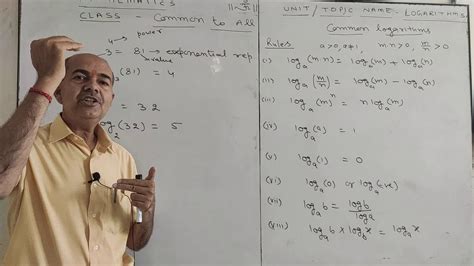 CLASS - Common to All
4 → power
3 = 81 → exponential rep
value
(81) = 4
= 32
log₂(32) = 5
UNIT/TOPIC NAME - LOGARITHMS
Common logarithms
Rules a>0, a≠1, m>0, m/n>0
(i) logₐ(m·n) = logₐ(m) + logₐ(n)
(ii) logₐ(m/n) = logₐ(m) - logₐ(n)
(iii) logₐ(m)ⁿ = n logₐ(m)
(iv) logₐ(a) = 1
(v) logₐ(1) = 0
(vi) logₐ(0) or logₐ(-ve)
(vii) logₐb = logb/loga
(viii) logₐb × log_b x = logₐx